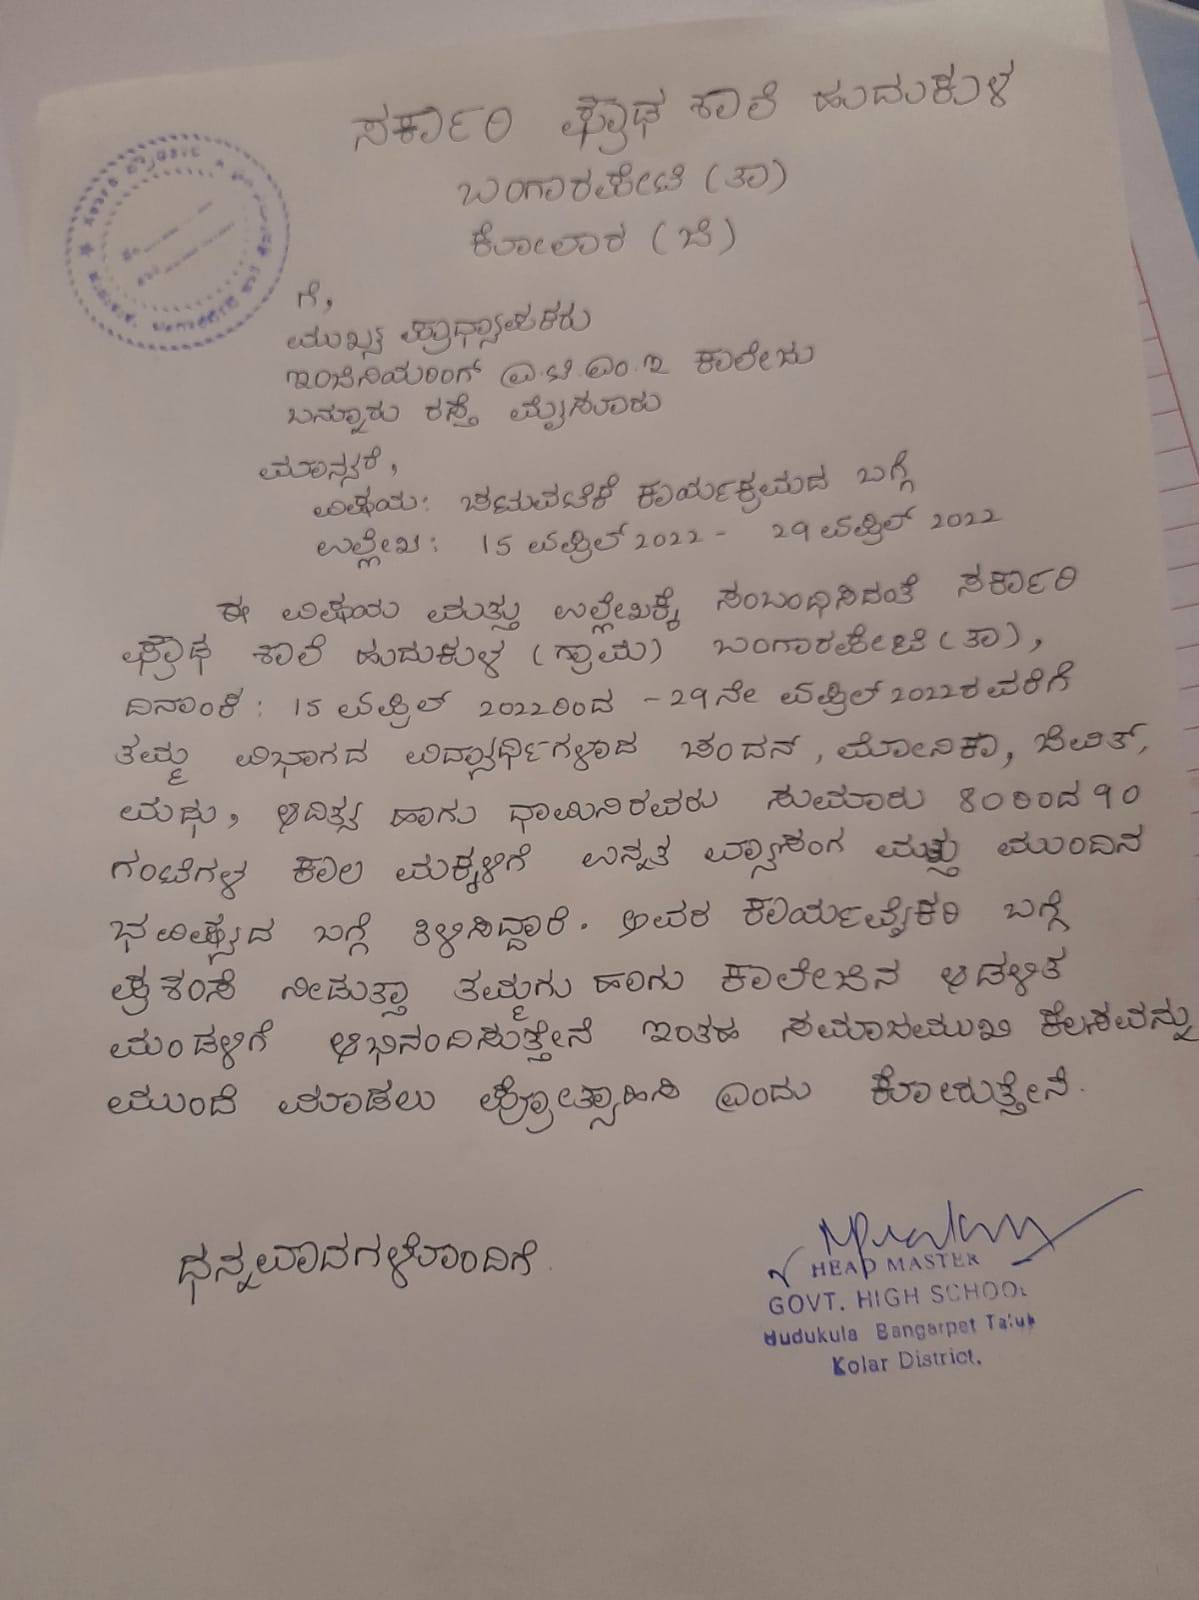 ಸರ್ಕಾರಿ ಪ್ರೌಢ ಶಾಲೆ ಹುದುಕುಳ
ಬಂಗಾರಪೇಟೆ (ತಾ)
ಕೋಲಾರ (ಜಿ)
ಗೆ,
ಮುಖ್ಯ ಪ್ರಾಧ್ಯಾಪಕರು
ಇಂಜಿನಿಯರಿಂಗ್ ಎ.ಟಿ.ಎಂ.ಇ ಕಾಲೇಜು
ಬನ್ನೂರು ರಸ್ತೆ ಮೈಸೂರು
ಮಾನ್ಯರೆ,
ವಿಷಯ: ಚಟುವಟಿಕೆ ಕಾರ್ಯಕ್ರಮದ ಬಗ್ಗೆ
ಉಲ್ಲೇಖ: 15 ಏಪ್ರಿಲ್ 2022 - 29 ಏಪ್ರಿಲ್ 2022
ಈ ವಿಷಯ ಮತ್ತು ಉಲ್ಲೇಖಕ್ಕೆ ಸಂಬಂಧಿಸಿದಂತೆ ಸರ್ಕಾರಿ
ಪ್ರೌಢ ಶಾಲೆ ಹುದುಕುಳ (ಗ್ರಾಮ) ಬಂಗಾರಪೇಟೆ (ತಾ),
ದಿನಾಂಕ: 15 ಏಪ್ರಿಲ್ 2022ರಿಂದ - 29ನೇ ಏಪ್ರಿಲ್ 2022ರವರೆಗೆ
ತಮ್ಮ ವಿಭಾಗದ ವಿದ್ಯಾರ್ಥಿಗಳಾದ ಚಂದನ್, ಮೋನಿಕಾ, ಜೀವಿತ್,
ಮಧು, ಆದಿತ್ಯ ಹಾಗು ಧಾಮಿನಿರವರು ಸುಮಾರು 80ರಿಂದ 90
ಗಂಟೆಗಳ ಕಾಲ ಮಕ್ಕಳಿಗೆ ಉನ್ನತ ವ್ಯಾಸಂಗ ಮತ್ತು ಮುಂದಿನ
ಭವಿಷ್ಯದ ಬಗ್ಗೆ ತಿಳಿಸಿದ್ದಾರೆ. ಅವರ ಕಾರ್ಯವೈಕರಿ ಬಗ್ಗೆ
ಪ್ರಶಂಸೆ ನೀಡುತ್ತಾ ತಮ್ಮಗು ಹಾಗು ಕಾಲೇಜಿನ ಆಡಳಿತ
ಮಂಡಳಿಗೆ ಅಭಿನಂದಿಸುತ್ತೇನೆ ಇಂತಹ ಸಮಾಜಮುಖಿ ಕೆಲಸವನ್ನು
ಮುಂದೆ ಮಾಡಲು ಪ್ರೋತ್ಸಾಹಿಸಿ ಎಂದು ಕೋರುತ್ತೇನೆ.
ಧನ್ಯವಾದಗಳೊಂದಿಗೆ
HEAD MASTER
GOVT. HIGH SCHOOL
Hudukula Bangarpet Taluk
Kolar District.